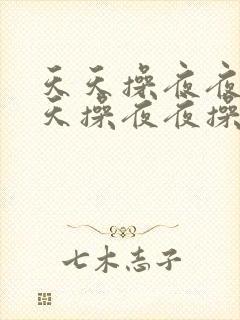 天天操夜夜
天操夜夜操
七木志子